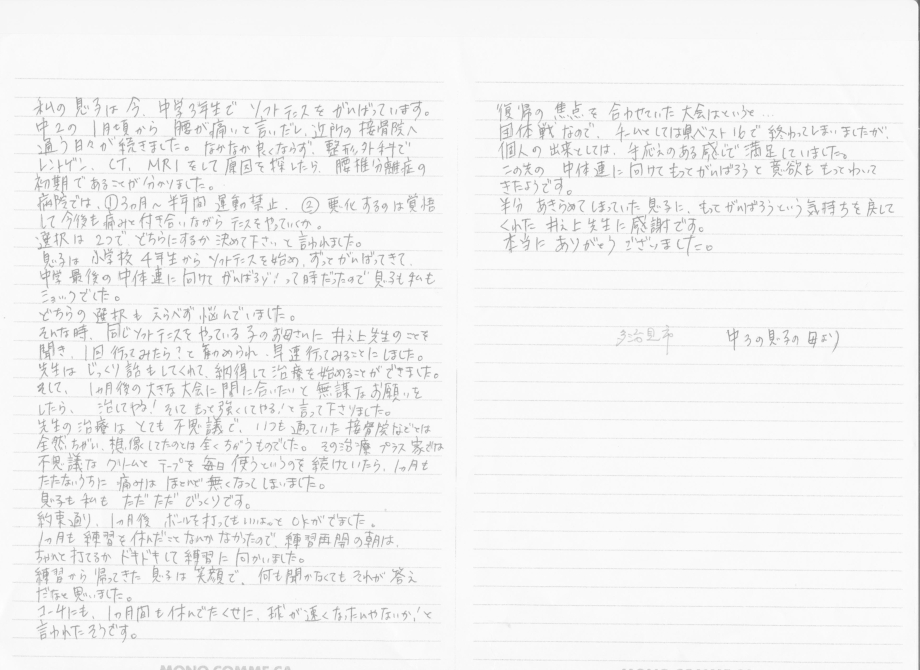 私の息子は今、中学3年生で ソフトテニスを がんばっています。
中2の 1月頃から 腰が痛いと言いだし、近所の接骨院へ
通う日々が続きました。なかなか良くならず、整形外科で
レントゲン、CT、MRIをして原因を探したら、腰椎分離症の
初期であることが分かりました。
病院では、①3ヵ月～半年間 運動禁止、②悪化するのは覚悟
して今後も痛みと付き合いながら テニスをやっていくか。
選択は 2つで、どちらにするか 決めて下さいと言われました。
息子は 小学校 4年生から ソフトテニスを始め、ずっとがんばってきて、
中学最後の中体連に向けて がんばるゾ！って時だったので 息子も私も
ショックでした。
どちらの選択も えらべず悩んでいました。
そんな時、同じソフトテニスを やっている 子のお母さんに 井上先生のことを
聞き、1回行ってみたら？と勧められ、早速行ってみることにしました。
先生は じっくり話もしてくれて、納得して治療を始めることができました。
そして、1ヵ月後の大きな大会に間に合いたいと 無謀なお願いを
したら、 治してやる！そして もっと強くしてやる！と言って下さりました。
先生の治療は とても 不思議で、いつも 通っていた 接骨院などとは
全然ちがい、想像してたのとは全くちがうものでした。その治療 プラス 家では
不思議な クリームと テープを 毎日 使うというのを 続けていたら、1ヵ月も
たたないうちに 痛みは ほとんど無くなってしまいました。
息子も 私も ただただ びっくりです。
約束通り、1ヵ月後 ボールを打ってもいいよ。と OKがでました。
1ヵ月も 練習を休んだことなんかなかったので、練習再開の朝は、
ちゃんと打てるか ドキドキして 練習に向かいました。
練習から 帰ってきた 息子は 笑顔で、何も聞かなくても それが 答え
だなと思いました。
コーチにも、1ヵ月間も休んでたくせに、球が速くなったんやないか！と
言われたそうです。
復帰の 焦点を 合わせていた 大会はというと…
団体戦なので、チームとしては県ベスト16で 終わってしまいましたが、
個人の出来としては、手応えのある感じで満足していました。
この先の 中体連に向けてもってがんばろうと 意欲も もってわいて
きたようです。
半分 あきらめてしまっていた 息子に、もってがんばろうという気持ちを戻して
くれた 井上先生に 感謝です。
本当に ありがとう ございました。
多治見市 中3の息子の母より
MONO COMME CA